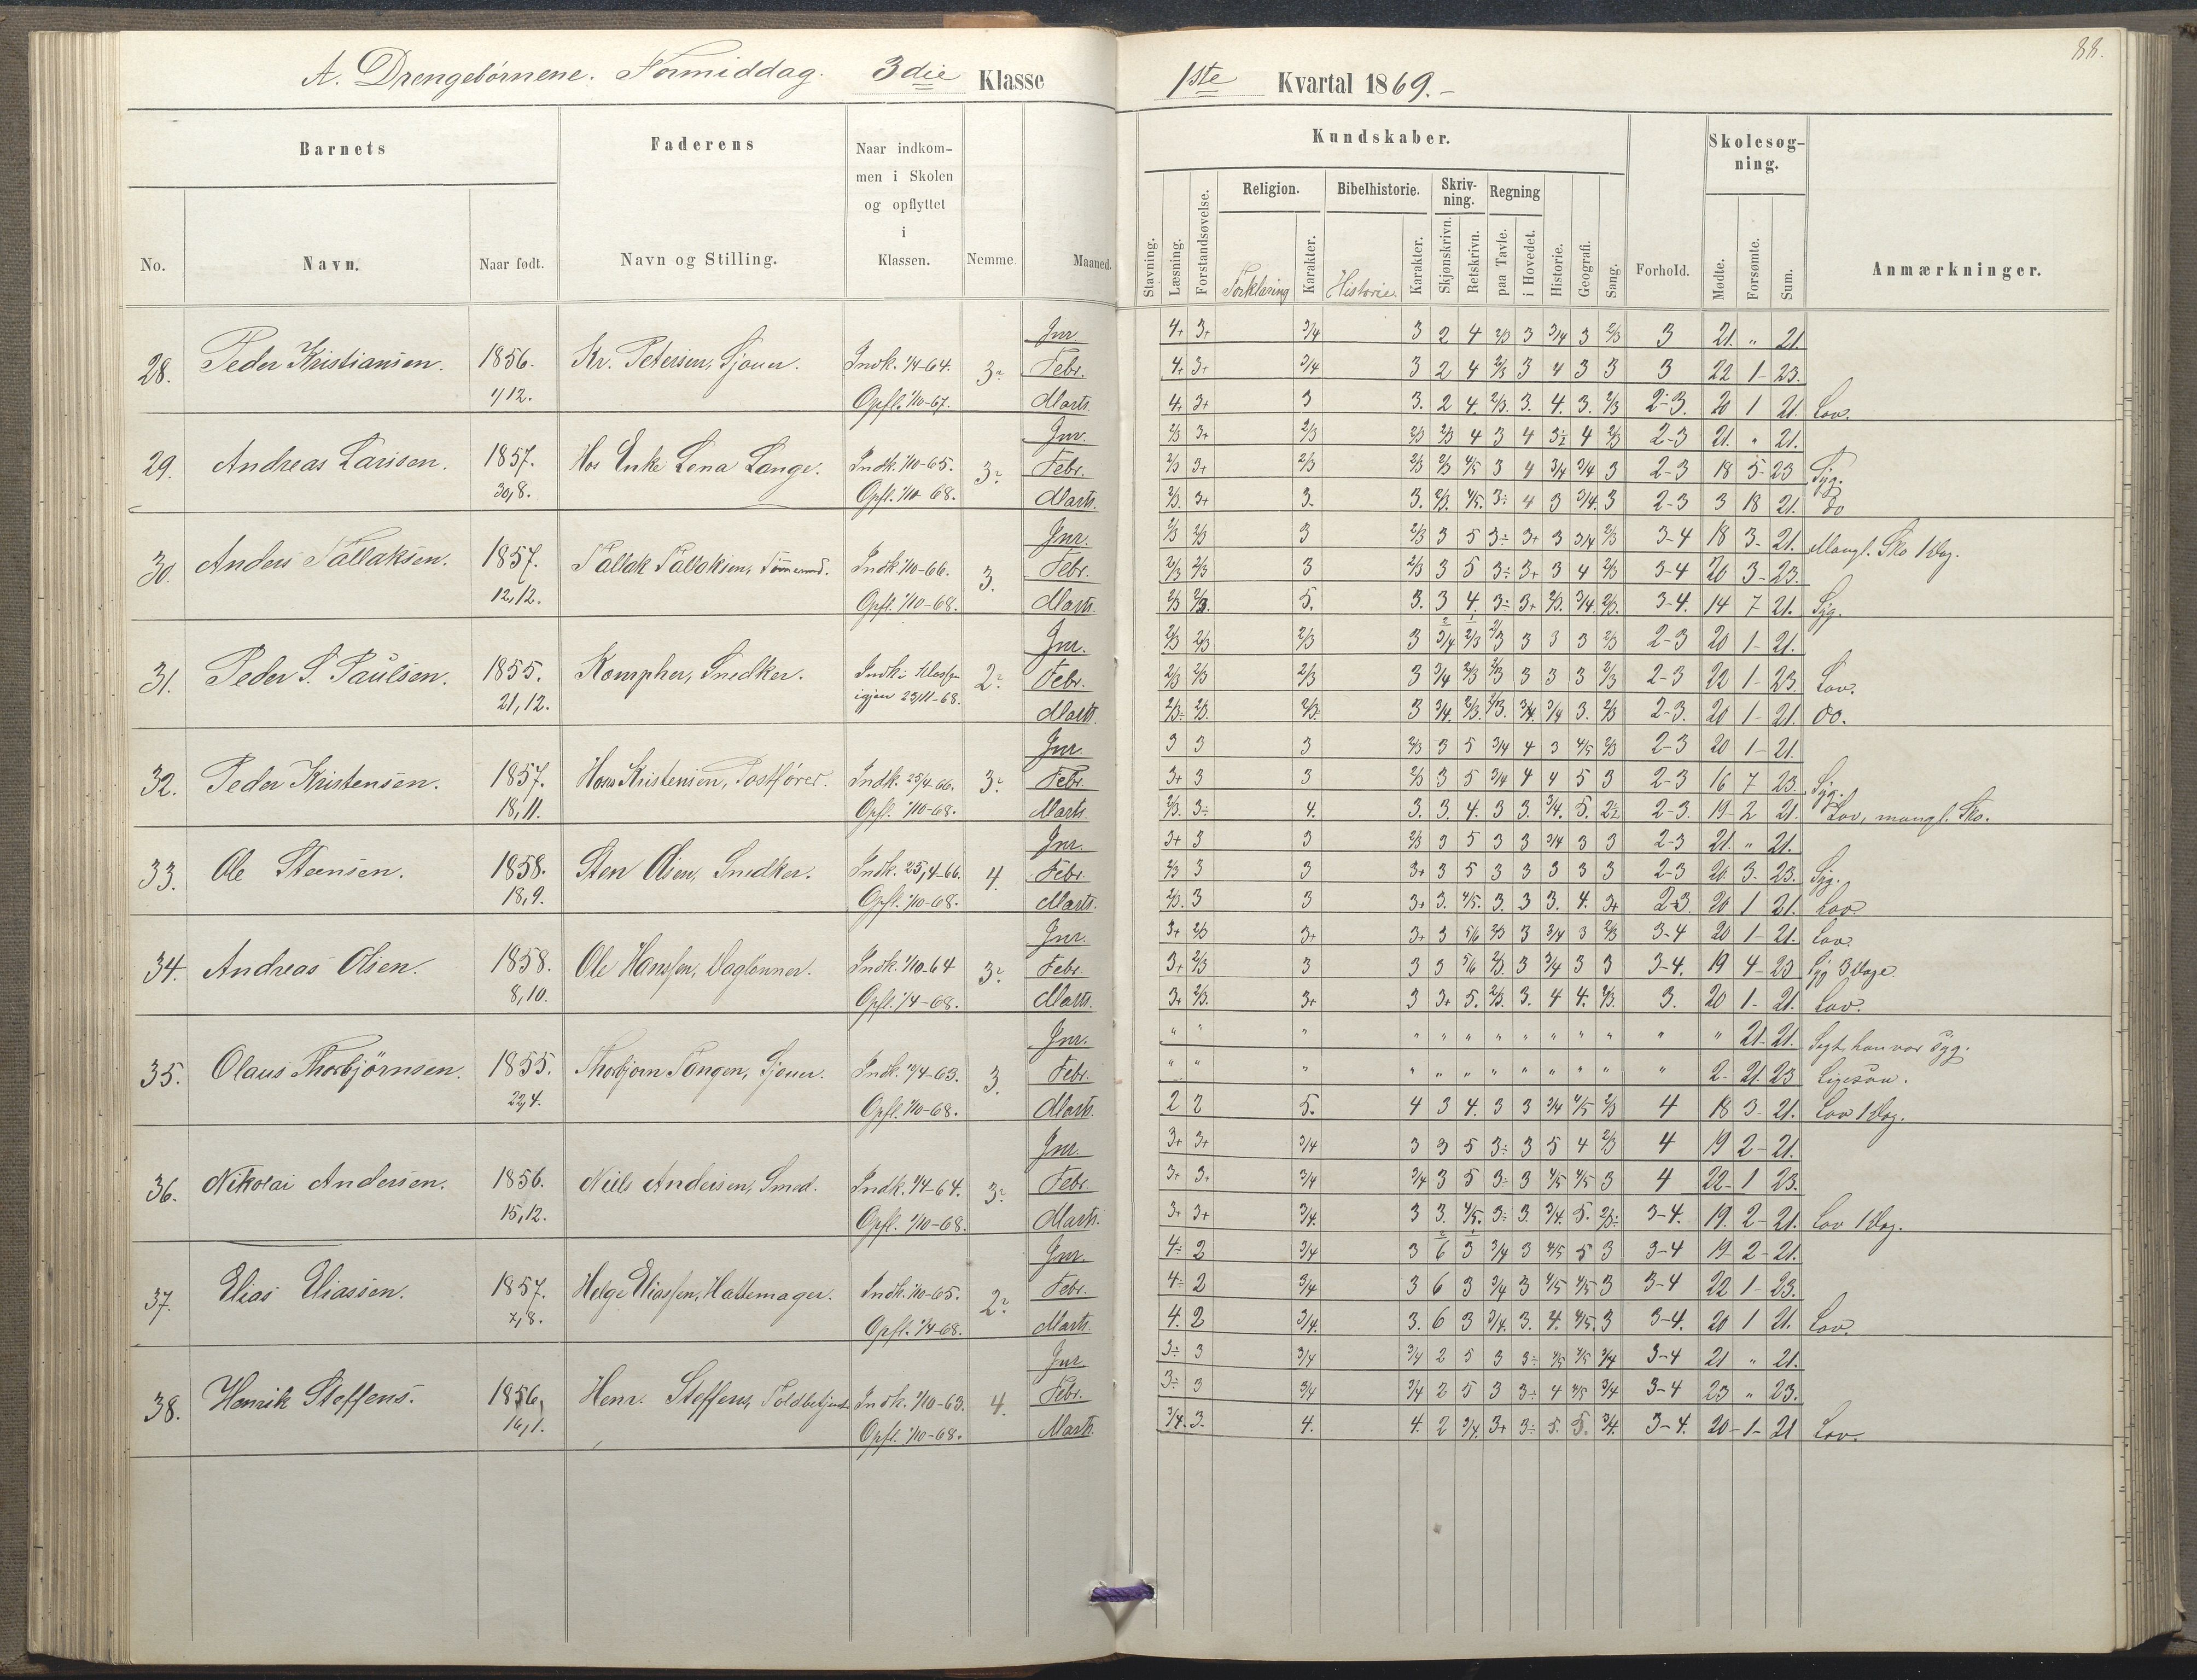 A. Drengebørnene. Formiddag. 3die Klasse
1ste Kvartal 1869.-
88.
Barnets
Faderens
Naar indkom-
men i Skolen
og opflyttet
i
Klassen.
No. Navn. Naar født. Navn og Stilling. Nemme. Maaned.
Kundskaber. Skolesøg-
ning.
Religion. Bibelhistorie. Skriv-
ning. Regning
Stavning. Læsning. Forstandsøvelse. Forklaring Karakter. Historie. Karakter. Skjønskrivn. Retskrivn. paa Tavle. i Hovedet. Historie. Geografi. Sang. Forhold. Mødte. Forsømte. Sum. Anmærkninger.
28. Peder Kristiansen. 1856. Kr. Petersen, Sjouer. Indk. 1/4-64. 3
1/12. Opfl. 1/10-67.
Jnr. 4+ 3+ 3/4 3 2 4 2/3 3 3/4 3 2/3 3 21. " 21.
Febr. 4+ 3+ 3/4 3 2 4 2/3 3 4 3 3 3 22 1- 23.
Marts. 4+ 3+ 3 3. 2 4. 2/3. 3. 4. 3. 2/3 2-3. 20 1 21. Lov.
29. Andreas Larisen. 1857. Hos Enke Lena Lange. Indk. 1/10-65. 3
30,8. Opfl. 1/10 68.
Jnr. 2/3 3+ 2/3 2/3 2/3 4 3 4 3÷ 4 2/3 2-3 21. " 21.
Febr. 2/3 3+ 2/3 2/3 2/3 4/5 3 4 3/4 3/4 3 2-3 18 5- 23 Syg.
Marts. 2/3. 3+ 3. 3. 2/3. 4/5. 3÷ 4 3 3/4. 3 2-3 3 18 21. do
30. Anders Tallaksen. 1857. Tallak Tallaksen, Tømmermd. Indk. 1/10-66. 3.
12,12. Opfl. 1/10-68.
Jnr. 2/3 2/3 3 2/3 3 5 3÷ 3+ 3 3/4 2/3 3-4 18 3- 21. Mangl. Sko 1 Dag.
Febr. 2/3 2/3 3 2/3 3 5 3÷ 3+ 3 4 2/3 3-4 20 3- 23.
Marts. 2/3 2/3. 5. 3. 3 4. 3÷ 3+ 2/3. 3/4. 2/3. 3-4. 14 7 21. Syg.
31. Peder S. Paulsen. 1855. Rompher, Snedker. Indk. i Klassen 2
21,12. igjen 23/11-68.
Jnr. 2/3 2/3 2/3 3 3/4 2/3 2/3 3 3 3 2/3 2-3 20 1- 21.
Febr. 2/3 2/3 2/3 3 3/4 2/3 2/3 3 3 3 2/3 2-3 22 1- 23. Lov.
Marts. 2/3÷ 2/3. 2/3. 3 3/4. 2/3. 2/3. 3/4. 3/4 3. 2/3 2-3. 20 1- 21. do.
32. Peder Kristensen. 1857. Hans Kristensen, Postfører. Indk. 25/4-66. 3
18,11. Opfl. 1/10-68.
Jnr. 3 3 3 2/3 3 5 3/4 4 3 4/5 2/3 2-3 20 1- 21.
Febr. 3+ 3 3 2/3 3 5 3/4 4 4 5 3 2-3 16 7 23. Syg.
Marts. 2/3. 3÷ 4. 3. 3. 4. 3 3. 3/4. 5. 2÷ 2-3. 19- 2 21. Lov, mangl. Sko.
33. Ole Steensen. 1858. Sten Olsen, Snedker. Indk. 25/4-66. 4.
18,9. Opfl. 1/10-68.
Jnr. 3+ 3 3 2/3 3 5 3 3 3/4 3 3 2-3 21. " 21.
Febr. 2/3 3 3 3+ 3 5 3 3 3 3 3 2-3 20. 3- 23. Syg.
Marts. 2/3. 3 3 3+ 3. 4/5. 3. 3 3. 4. 3+ 2-3 20 1 21. Lov
34. Andreas Olsen. 1858. Ole Hanssen, Daglønner. Indk. 1/10-64 3
8,10. Opfl. 1/4-68.
Jnr. 3+ 2/3 3+ 3+ 3 5/6 2/3 3 3/4 3 2/3 3-4 20 1- 21. Lov.
Febr. 3+ 2/3 3 3 3 5/6 2/3. 3 3/4 3 3 3-4. 19 4- 23 Syg 3 Dage.
Marts. 3+ 2/3. 3+ 3 3+ 5. 2/3. 3. 4 4. 2/3. 3. 20 1- 21. Lov.
35. Olaus Thorbjørnsen. 1855. Thorbjørn Tangen, Sjouer. Indk. 1/4-63. 3.
22,4. Opfl. 1/10-68.
Jnr. " " " " " " " " " " " " " 21- 21. Sagt, han var syg.
Febr. " " " " " " " " " " " " 2- 21. 23 Ligesaa.
Marts. 2 2 5. 4 3 4. 3 3 3/4 4/5 2/3 4 18 3- 21. Lov 1 Dag.
36. Nikolai Andersen. 1856. Niels Andersen, Smed. Indk. 1/4-64. 3
15,12. Opfl. 1/10-68.
Jnr. 3+ 3+ 3/4 3 3 5 3÷ 3 5 4 2/3 4 19 2- 21.
Febr. 3+ 3+ 3/4 3/4 3 5 3÷ 3 4/5 4/5 3 4 22- 1 23.
Marts. 3+ 3+ 3/4. 3 3. 4/5. 3÷ 3. 3/4. 5. 2/3÷ 3-4. 19. 2- 21. Lov 1 Dag.
37. Elias Eliassen. 1857. Helge Eliassen, Hattemager. Indk. 1/10-65. 2
7,8. Opfl. 1/4-68.
Jnr. 4÷ 2 3/4 3 6 3 3/4 3 4/5 5 3 3-4 19- 2- 21.
Febr. 4÷ 2 3/4 3 6 3 3/4 3 4/5 4/5 3 3-4 22 1- 23.
Marts. 4. 2 3/4. 3. 6 3 3/4. 3. 4. 4/5. 3 3-4. 20 1 21. Lov.
38. Henrik Steffens. 1856, Henr. Steffens, Toldbetjent Indk. 1/10-63. 4.
16,1. Opfl. 1/10-68.
Jnr. 3÷ 3 3/4 3/4 2 5 3 3÷ 4/5 4/5 3/4 3-4 21 " 21.
Febr. 3÷ 3 3/4 3/4 2 5 3 3÷ 4 4/5 3/4 3-4 23 " 23.
Marts. 3/4. 3. 4. 4. 2 3/4. 3+ 3÷ 5. 5. 3/4. 3-4. 20- 1- 21 Lov.